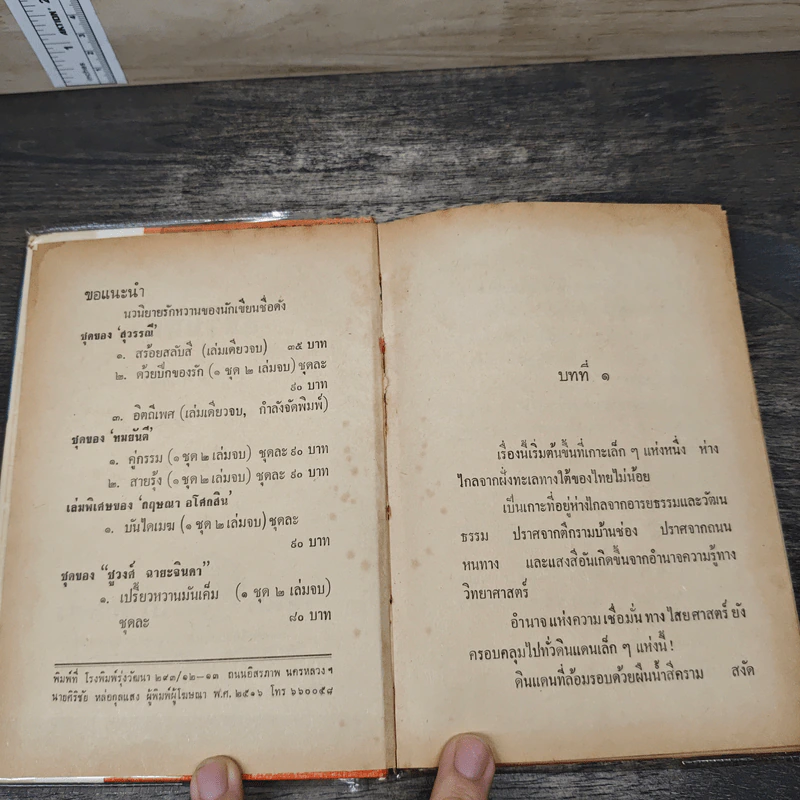 ขอแนะนำ
นวนิยายรักหวานของนักเขียนชื่อดัง
ชุดของ 'สุวรรณี'
๑. สร้อยสลับสี (เล่มเดียวจบ) ๓๕ บาท
๒. ด้วยปีกของรัก (๑ ชุด ๒ เล่มจบ) ชุดละ
๙๐ บาท
๓. อิตถีเพศ (เล่มเดียวจบ, กำลังจัดพิมพ์)
ชุดของ 'ทมยันตี'
๑. คู่กรรม (๑ ชุด ๒ เล่มจบ) ชุดละ ๙๐ บาท
๒. สายรุ้ง (๑ ชุด ๒ เล่มจบ) ชุดละ ๙๐ บาท
เล่มพิเศษของ 'กฤษณา อโศกสิน'
๑. บันไดเมฆ (๑ ชุด ๒ เล่มจบ) ชุดละ
๙๐ บาท
ชุดของ "ชูวงศ์ ฉายะจินดา"
๑. เปรี้ยวหวานมันเค็ม (๑ ชุด ๒ เล่มจบ)
ชุดละ ๘๐ บาท
พิมพ์ที่ โรงพิมพ์รุ่งวัฒนา ๒๙๓/๑๒-๑๓ ถนนอิสรภาพ นครหลวงฯ
นายศิริชัย หล่อกุลแสง ผู้พิมพ์ผู้โฆษณา พ.ศ. ๒๕๑๖ โทร ๖๖๐๐๕๘
บทที่ ๑
เรื่องนี้เริ่มต้นขึ้นที่เกาะเล็ก ๆ แห่งหนึ่ง ห่าง
ไกลจากฝั่งทะเลทางใต้ของไทยไม่น้อย
เป็นเกาะที่อยู่ห่างไกลจากอารยธรรมและวัฒน
ธรรม ปราศจากตึกรามบ้านช่อง ปราศจากถนน
หนทาง และแสงสีอันเกิดขึ้นจากอำนาจความรู้ทาง
วิทยาศาสตร์
อำนาจแห่งความเชื่อมั่นทางไสยศาสตร์ ยัง
ครอบคลุมไปทั่วดินแดนเล็ก ๆ แห่งนี้ !
ดินแดนที่ล้อมรอบด้วยผืนน้ำสีคราม สงัด